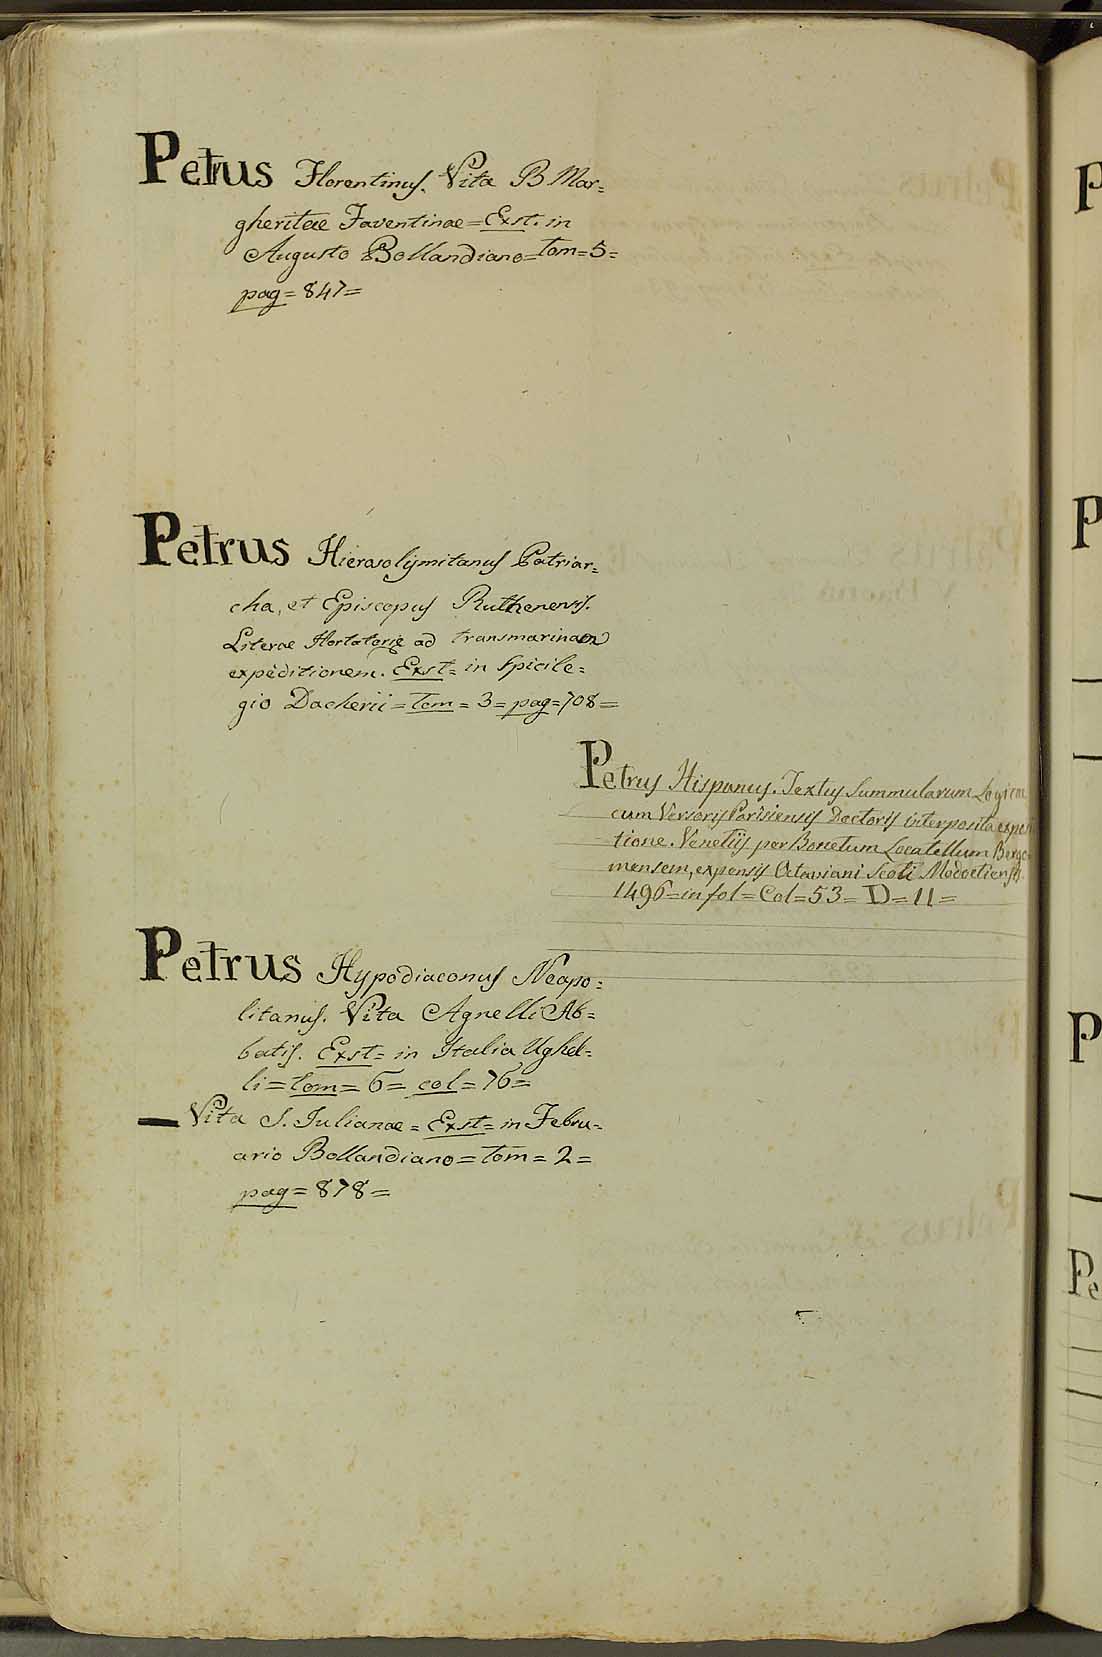 Petrus Florentinus. Vita B. Mar=
gheritae Faventinae = Exst. in
Augusto Bollandiano = tom = 5 =
pag = 847 =
Petrus Hierosolymitanus Patriar=
cha, et Episcopus Ruthenensis.
Literae Hortatorie ad transmarinam
expeditionem. Exst = in Spicile=
gio Dacherii = tom = 3 = pag = 708 =
Petrus Hispanus. Textus Summularum Logicae
cum Versoris Parisiensis Doctoris interposita exposi
tione. Venetiis per Bonetum Locatellum Bergo
mensem, expensis Octaviani Scoti Modoetiensis.
1496 = in fol = Col = 53 = D = 11 =
Petrus Hypodiaconus Neapo=
litanus. Vita Agnelli Ab=
batis. Exst = in Italia Ughel=
li = tom = 6 = col = 76 =
— Vita S. Iulianae = Exst = in Febru=
ario Bollandiano = tom = 2 =
pag = 878 =
P
P
P
Pe